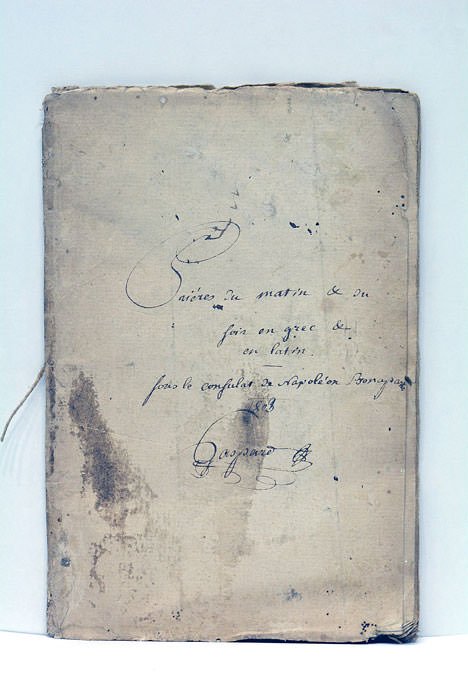 Prières du matin & du
soir en grec &
en latin.
sous le consulat de Napoléon Bonapar
Gaspard